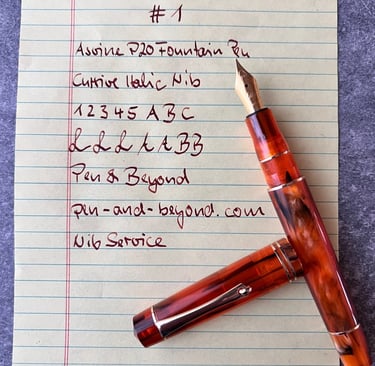 #1
Asvine P20 Fountain Pen
Cursive Italic Nib
1 2 3 4 5 A B C
L L L A A B B
Pen & Beyond
pen-and-beyond.com
Nib Service